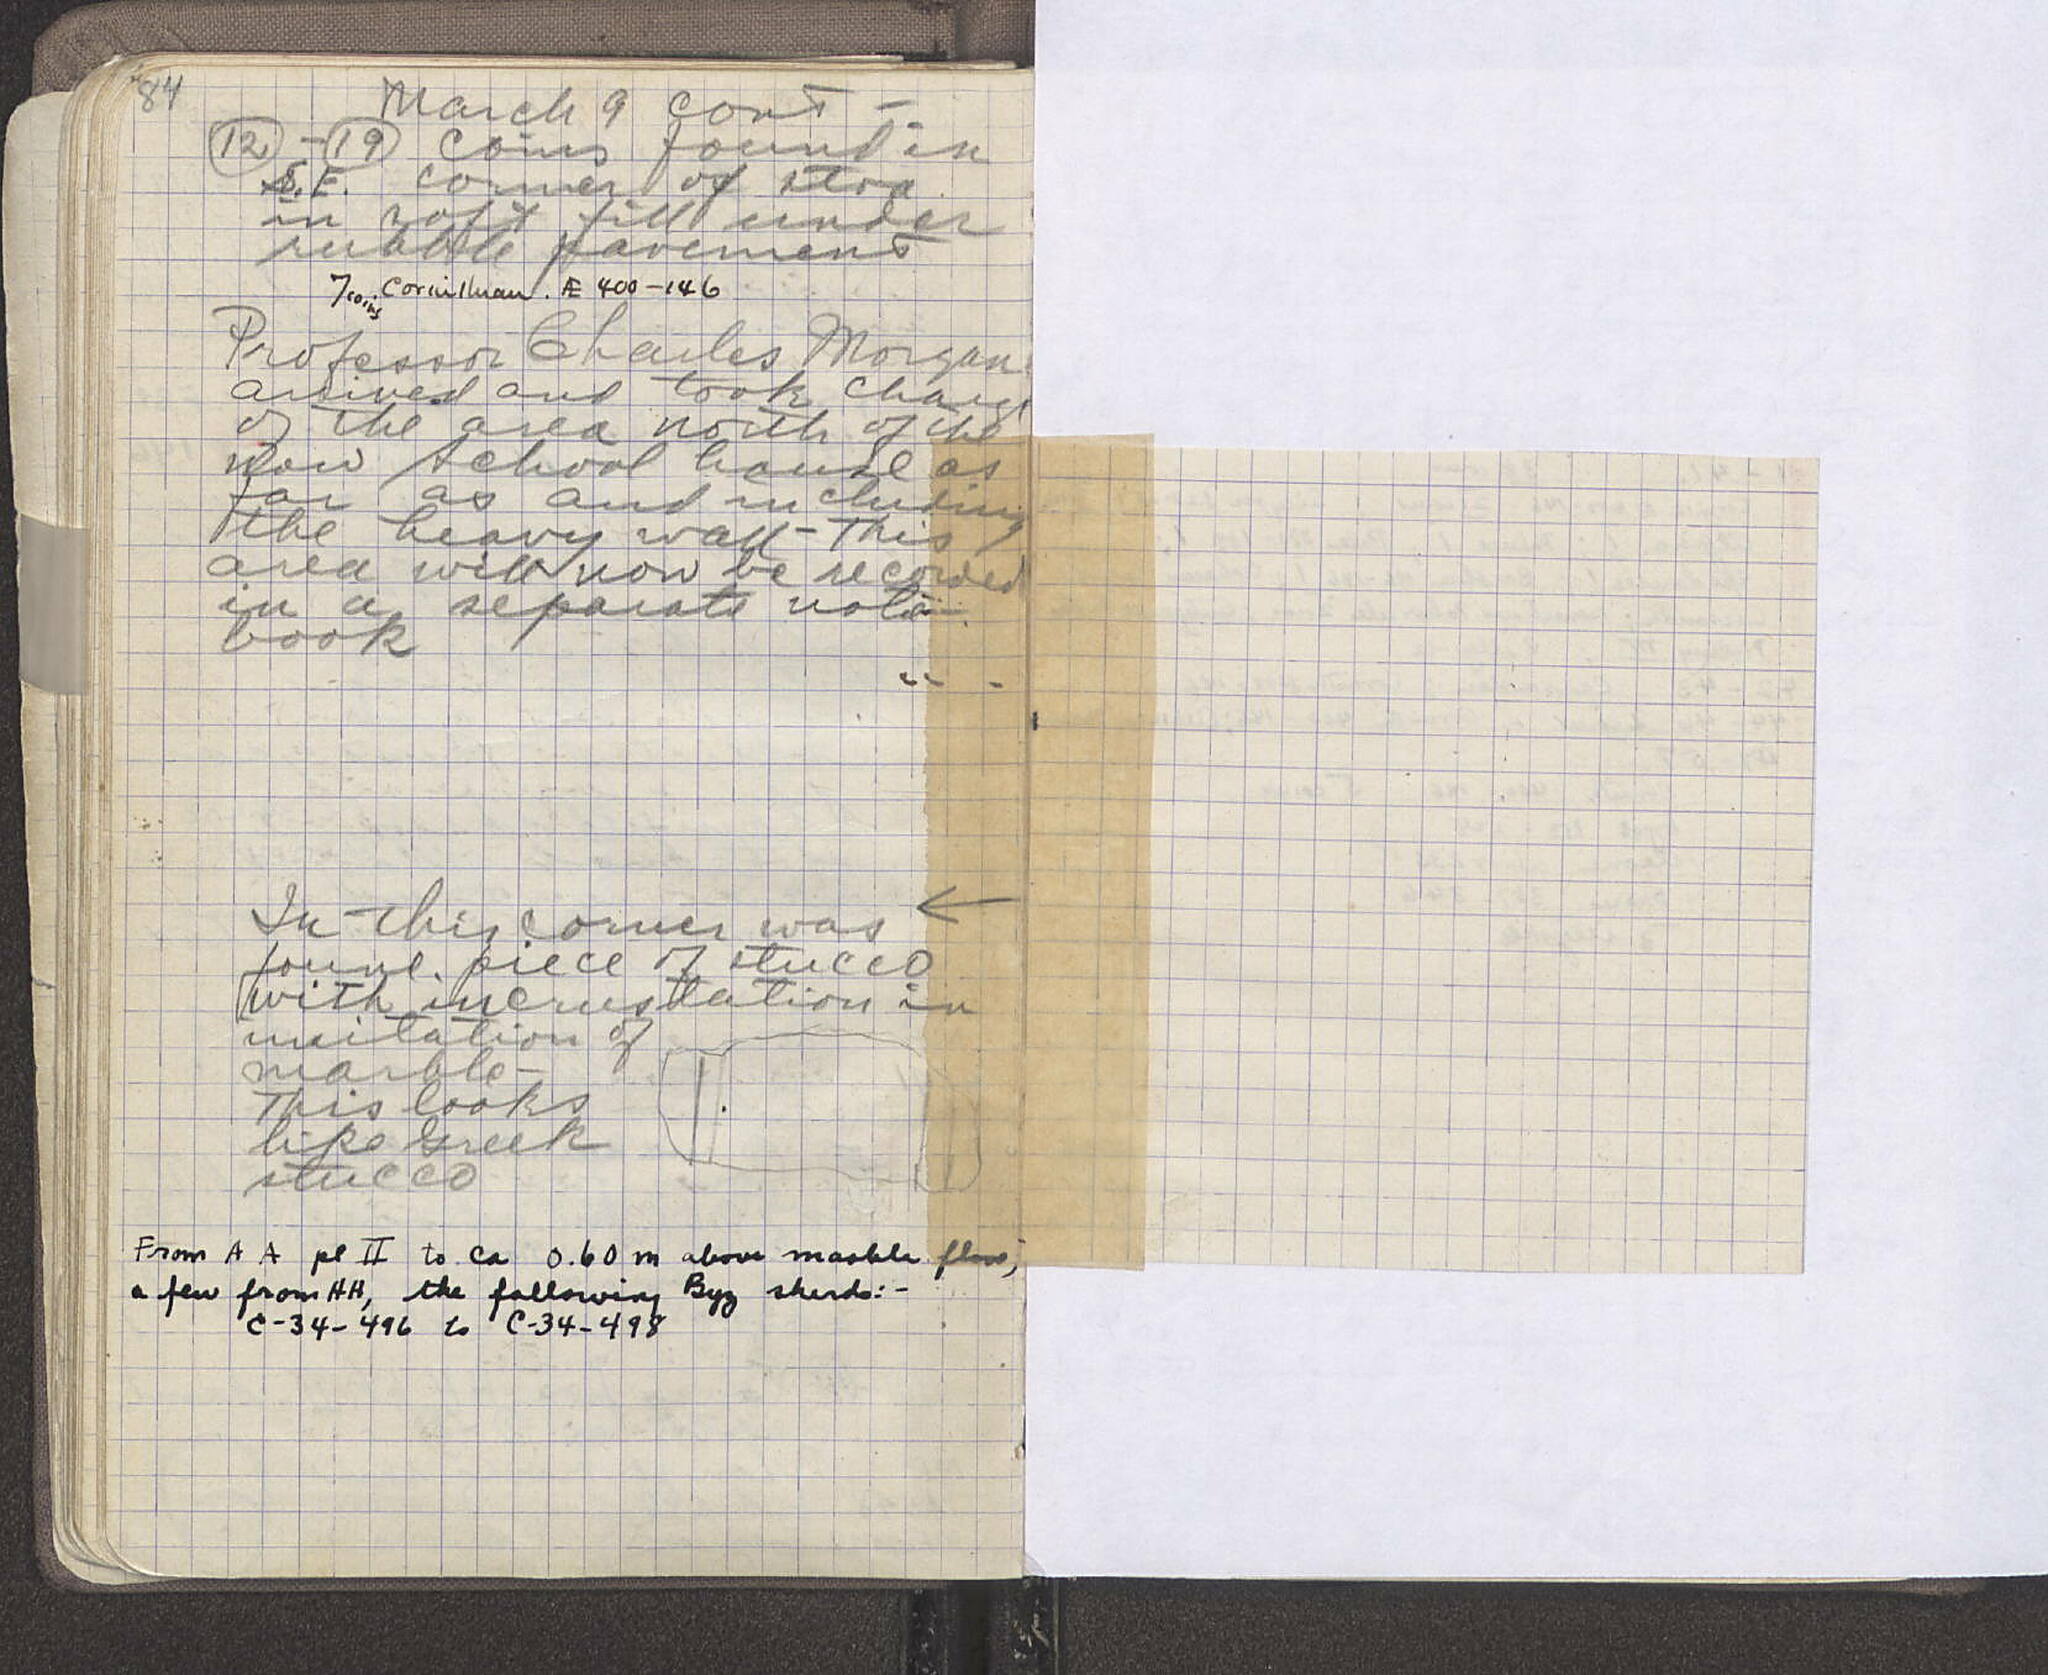 84
March 9 cont -
12 - 19 coins found in
S.E. corner of stoa
in soft fill under
rubble pavement
7 coins Corinthian. Æ 400-146
Professor Charles Morgan
arrived and took charge
of the area north of the
now school house as
far as and including
the heavy wall - This
area will now be recorded
in a separate note-
book
In this corner was ←
found. piece of stucco
with incrustation in
imitation of
marble -
This looks
like Greek
stucco
From A A pl II to ca 0.60 m above marble floor,
a few from HH, the following Byz sherds:-
C-34-496 to C-34-498